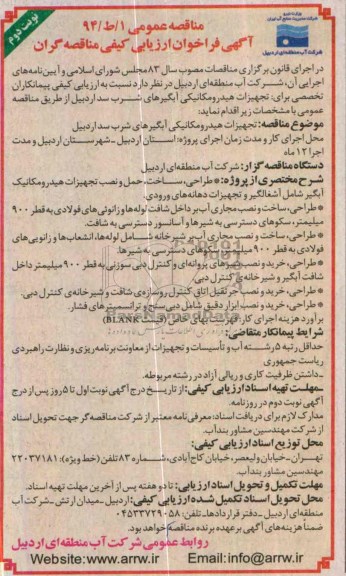 نوبت دوم
مناقصه عمومی ۱/ط/۹۴
آگهی فراخوان ارزیابی کیفی مناقصه گران
شرکت آب منطقه‌ای اردبیل
در اجرای قانون برگزاری مناقصات مصوب سال ۸۳ مجلس شورای اسلامی و آیین‌نامه‌های
اجرایی آن، شرکت آب منطقه‌ای اردبیل در نظر دارد نسبت به ارزیابی کیفی پیمانکاران
تخصصی برای: تجهیزات هیدرومکانیکی آبگیرهای شرب سد اردبیل از طریق مناقصه
عمومی با مشخصات زیر اقدام نماید:
موضوع مناقصه: تجهیزات هیدرومکانیکی آبگیرهای شرب سد اردبیل
محل اجرای کار و مدت زمان اجرای پروژه: استان اردبیل ـ شهرستان اردبیل و مدت
اجرا ۱۲ ماه
دستگاه مناقصه گزار: شرکت آب منطقه‌ای اردبیل
شرح مختصری از پروژه: *طراحی، ساخت، حمل و نصب تجهیزات هیدرومکانیک
آبگیر شامل آشغالگیر و تجهیزات دهانه‌های ورودی.
*طراحی، ساخت و نصب مجاری آب‌بر داخل شافت لوله‌ها و زانوئی‌های فولادی به قطر ۹۰۰
میلیمتر، سکوهای دسترسی به شیرها و آسانسور دسترسی به شافت.
*طراحی، ساخت و نصب مجاری آب‌بر شیرخانه شامل لوله‌ها، انشعاب‌ها و زانویی‌های
فولادی به قطر ۹۰۰ میلیمتر و سکوهای دسترسی به شیرها.
*طراحی، خرید و نصب شیرهای پروانه‌ای و کنترل دبی سوزنی به قطر ۹۰۰ میلیمتر داخل
شافت آبگیر و شیرخانه‌ی کنترل دبی.
*طراحی، خرید و نصب جرثقیل اتاق کنترل روسازه‌ی شافت و شیرخانه‌ی کنترل دبی.
*طراحی، خرید و نصب ابزار دقیق شامل دبی سنج و ترانسمیتر های فشار.
برآورد هزینه اجرای کار: فهرست بهای خاص (فیلد BLANK)
شرایط پیمانکار متقاضی:
حداقل رتبه ۵ رشته آب و تأسیسات و تجهیزات از معاونت برنامه‌ریزی و نظارت راهبردی
ریاست جمهوری
ـ داشتن ظرفیت کاری و ریالی آزاد در رشته مربوطه.
ـ مهلت تهیه اسناد ارزیابی کیفی: از تاریخ درج آگهی نوبت اول تا ۵ روز پس از درج
آگهی نوبت دوم در روزنامه.
مدارک لازم برای دریافت اسناد: معرفی‌نامه معتبر از شرکت مناقصه گر جهت تحویل اسناد
از شرکت مهندسین مشاور بندآب.
محل توزیع اسناد ارزیابی کیفی:
تهران ـ خیابان ولیعصر، خیابان کاج‌آبادی، شماره ۸۳ تلفن: (خط ویژه): ۲۲۰۳۷۱۸۱
مهندسین مشاور بندآب.
مهلت تکمیل و تحویل اسناد ارزیابی: تا دو هفته پس از آخرین مهلت تهیه اسناد.
محل تحویل اسناد تکمیل شده ارزیابی کیفی: اردبیل ـ میدان ارتش ـ شرکت آب
منطقه‌ای اردبیل ـ دفتر قراردادها ـ تلفن: ۰۴۵۳۳۷۲۹۰۵۸
ضمناً هزینه‌های آگهی بر عهده برنده مناقصه خواهد بود.
روابط عمومی شرکت آب منطقه‌ای اردبیل
Website:www.arrw.ir Email:info@arrw.ir